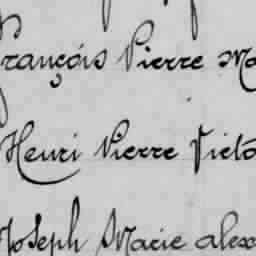 François Pierre Ma
Henri Pierre Victo
Joseph Marie alex